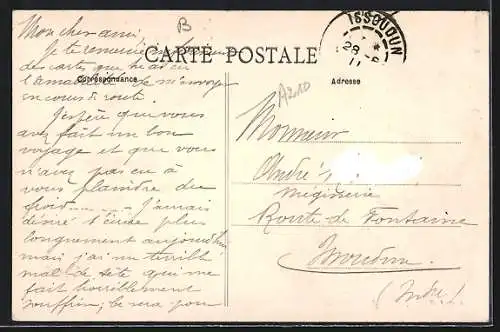 B
ISSOUDUN
28
CARTE POSTALE
Correspondance
Adresse
A210
Mon cher ami.
Je te remercie
des cartes que
m'envoyer
en cours de route.
J'espère que vous
avez fait un bon
voyage et que vous
n'avez pas eu à
vous plaindre du
froid. J'aurais
désiré t'écrire plus
longuement aujourd'hui
mais j'ai un terrible
mal de tête qui me
fait horriblement
souffrir; ce sera pour
Monsieur
André
Mégisserie
Route de Fontaine
Issoudun
(Indre)